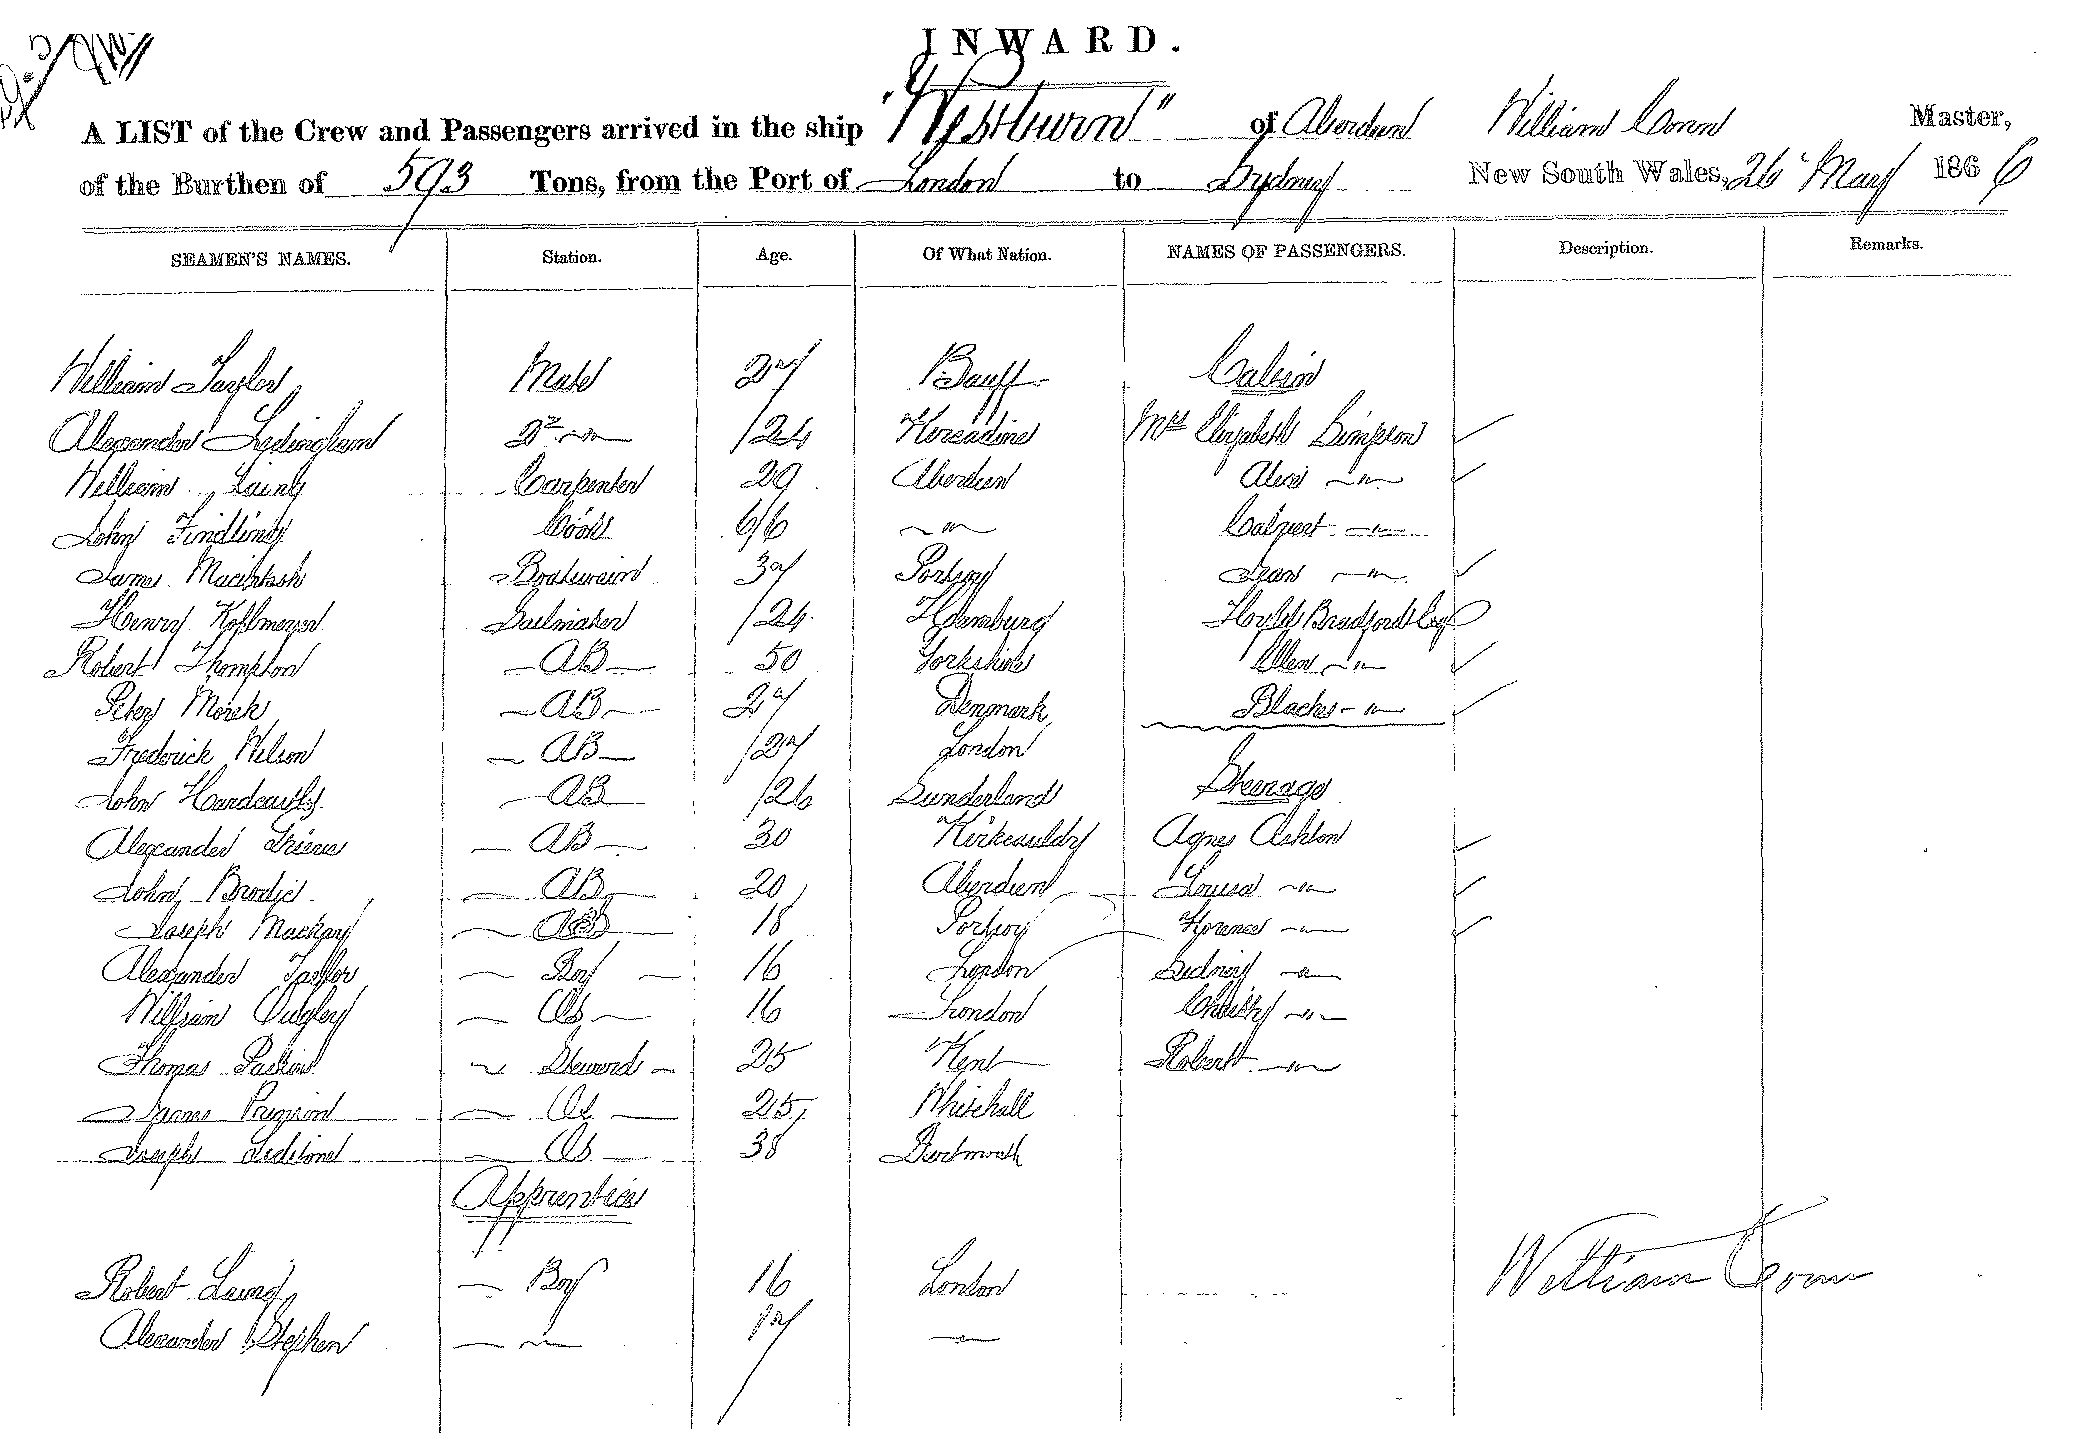 INWARD.
A LIST of the Crew and Passengers arrived in the ship "Westburn" of Aberdeen William Conn Master,
of the Burthen of 593 Tons, from the Port of London to Sydney New South Wales, 26 May 1866
SEAMEN'S NAMES. Station. Age. Of What Nation. NAMES OF PASSENGERS. Description. Remarks.
William Taylor Mate 27 Banff Cabin
Alexander Ledingham 2d —"— 24 Kincardine Mrs Elizabeth Simpson
William Laing Carpenter 29 Aberdeen Alice —"—
John Findlay Cook 66 —"— —"—
James Macintosh Boatswain 37 Portsoy Jean —"—
Henry Sailmaker 24 Hamburg Bradford Esq
Robert Thompson AB 50 Yorkshire Ellen —"—
Peter AB 27 Denmark —"—
Frederick Nelson AB 27 London
John Hardcastle AB 26 Sunderland Steerage
Alexander AB 30 Kirkcauldy Agnes Ashton
John Brodie AB 20 Aberdeen Louisa —"—
Joseph Mackay 18 Portsoy Florence —"—
Alexander Taylor Boy 16 London Sidney —"—
William Quigley Os 16 London —"—
Thomas Steward 25 Kent Robert —"—
James Os 25 Whitehall
Joseph Os 38 Dartmouth
Apprentices
Robert Laing Boy 16 London
Alexander Stephen —"— 17 —"—
William Conn